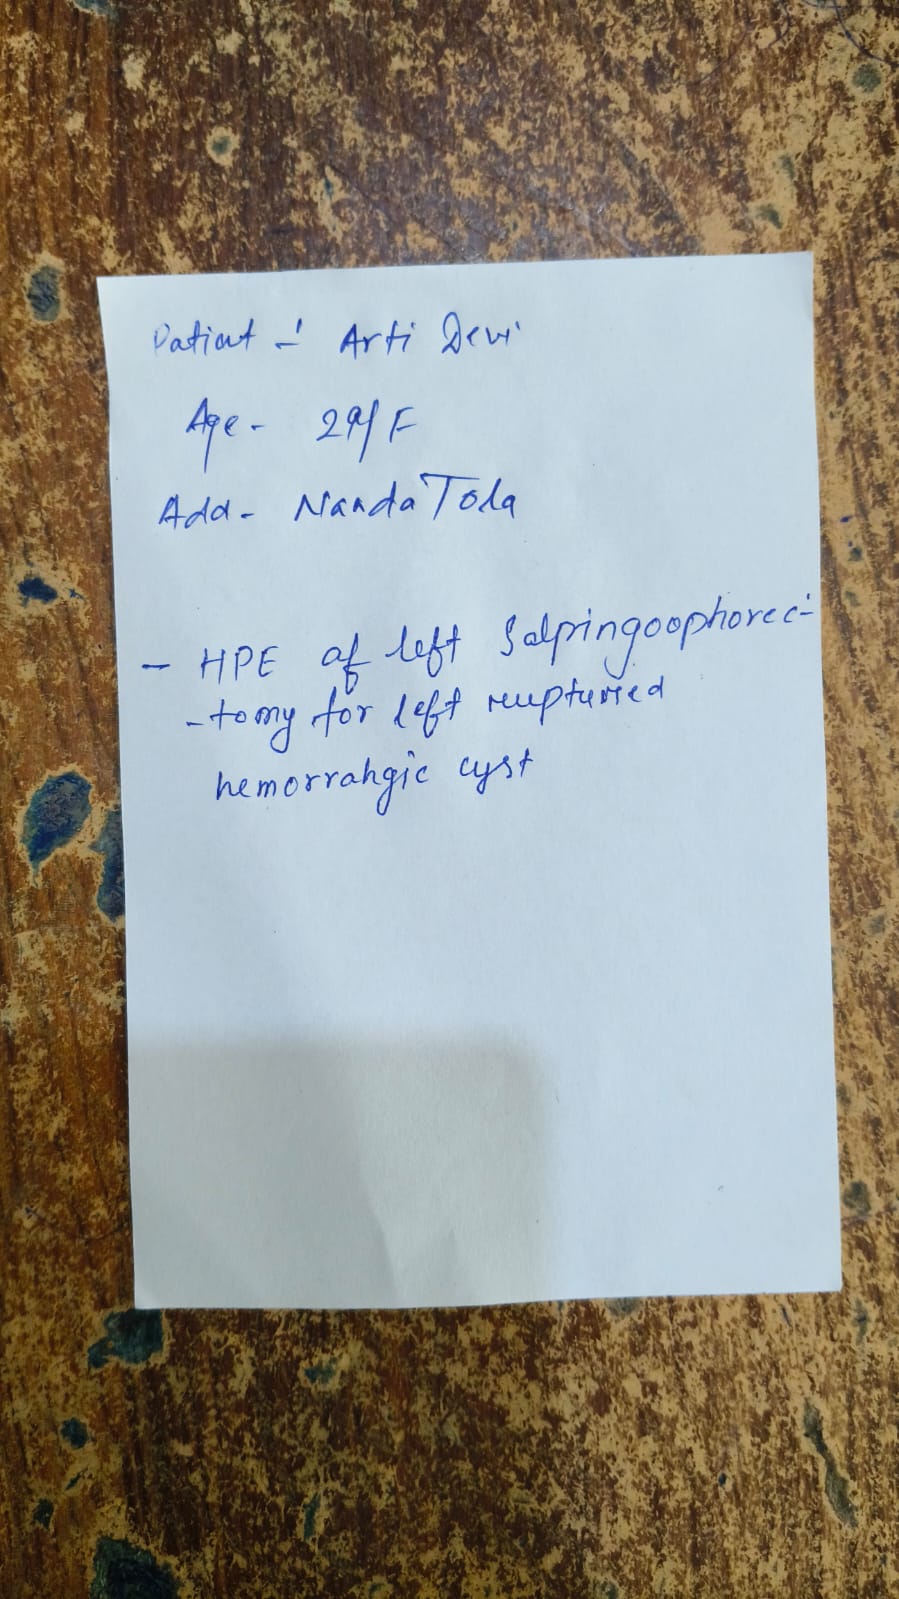 Patient - Arti Devi
Age - 29/F
Add - Nanda Tola
- HPE of left Salpingoophorec-
-tomy for left ruptured
hemorrahgic cyst